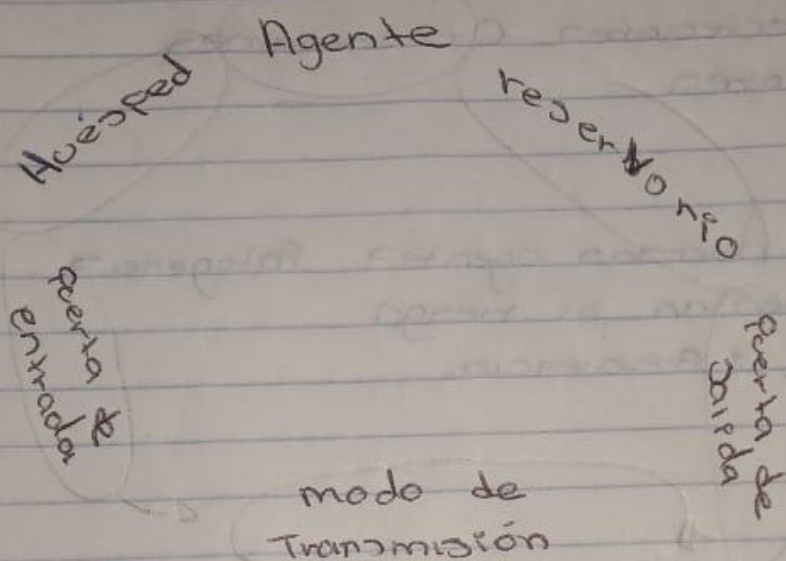 Agente
reservorio
Puerta de
Salida
modo de
Transmisión
Puerta de
entrada
Huésped